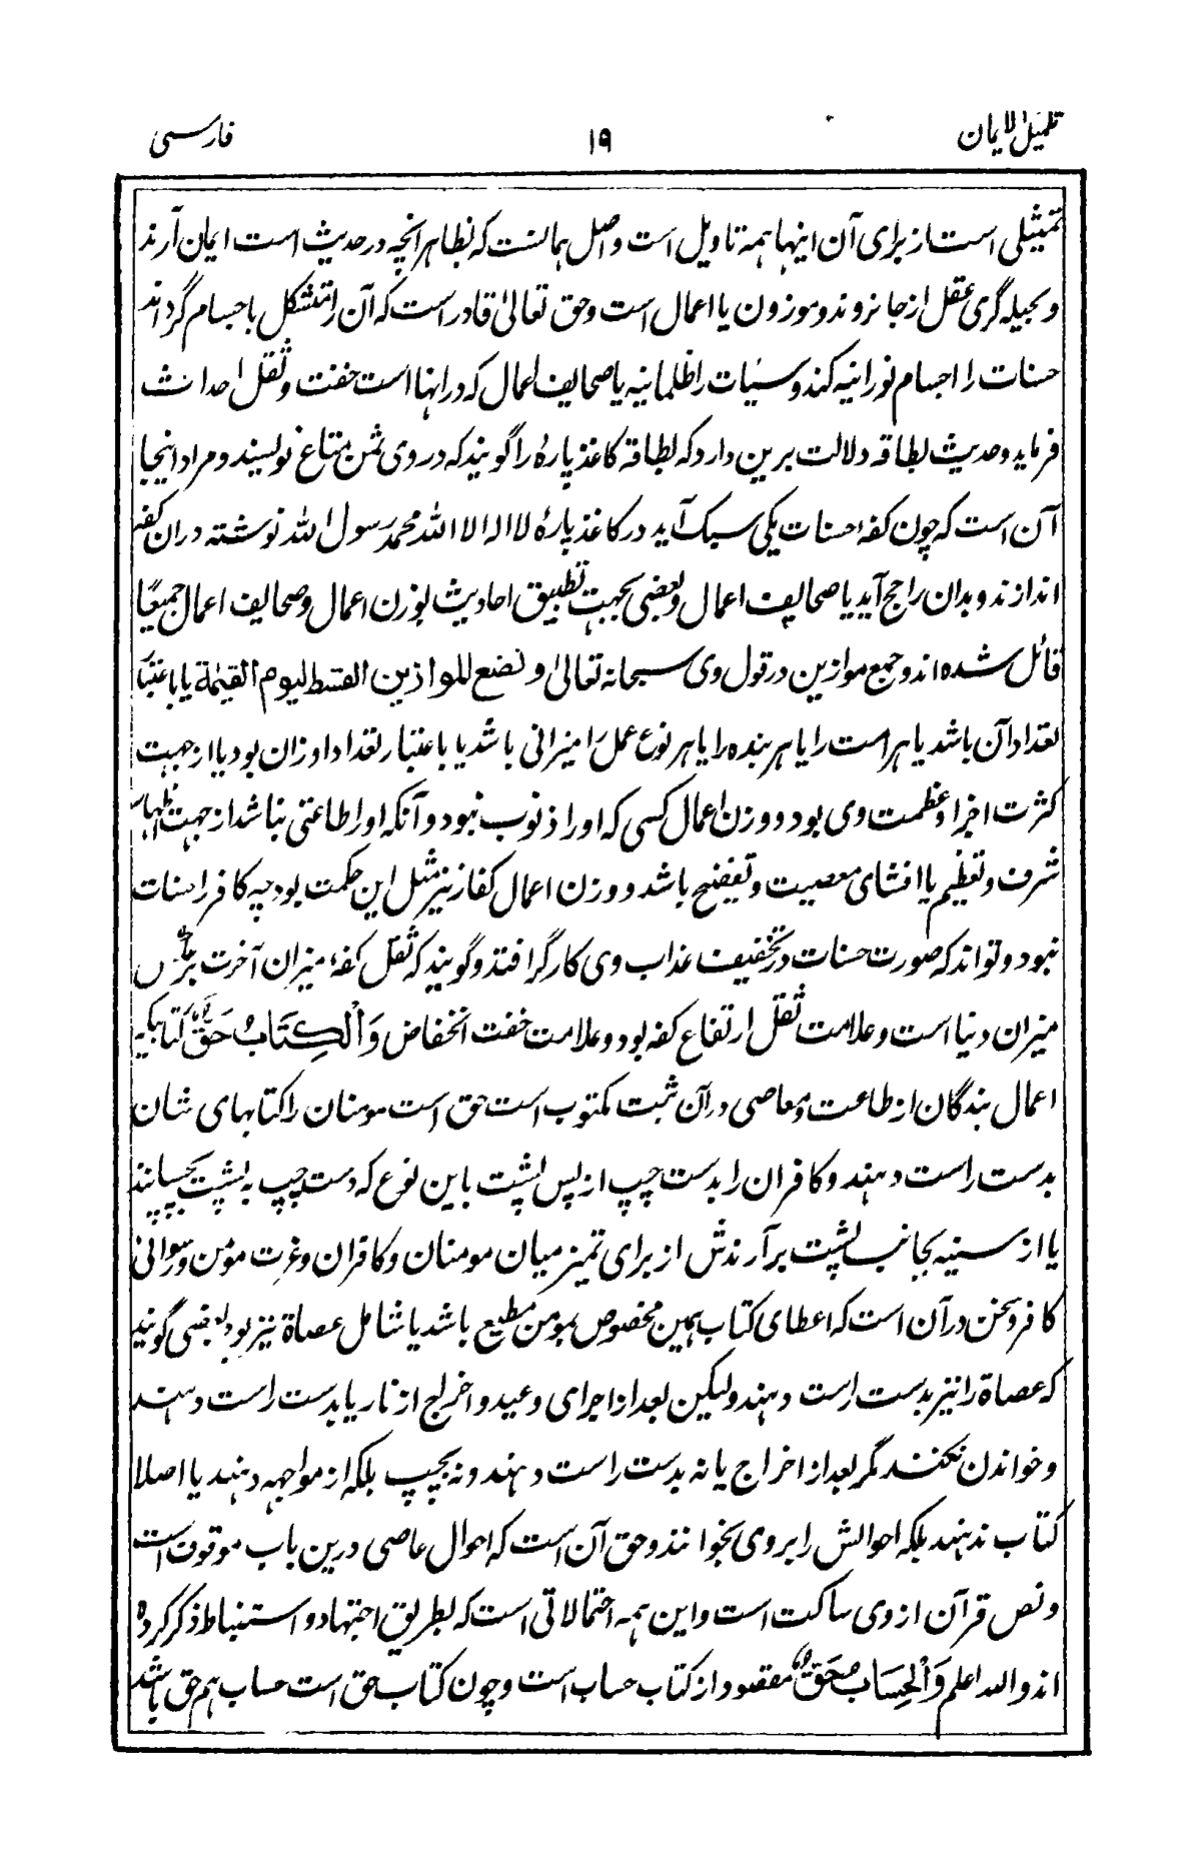 تکمیل الایمان ۱۹ فارسی
تمثیلی است از برای آن اینها همه تاویل است و اصل همانست که بظاهر آنچه در حدیث است ایمان آرند
و بحیله گری عقل از جا نروند و موزون یا اعمال است و حق تعالیٰ قادر است که آن را متشکل باجسام گرداند
حسنات را اجسام نورانیه کند و سیٔات را ظلمانیه یا صحایف اعمال که در انها است خفت و ثقل احداث
فرماید و حدیث بطاقه دلالت برین دارد که بطاقه کاغذ پارهٔ را گویند که در وی ثمن متاع نویسند و مراد اینجا
آن است که چون کفهٔ حسنات یکی سبک آید در کاغذ پارهٔ لا اله الا الله محمد رسول الله نوشته دران کفه
اندازند و بدان راجح آید یا صحایف اعمال و بعضی بجهت تطبیق احادیث بوزن اعمال و صحایف اعمال جمیعًا
قائل شده اند و جمع موازین در قول وی سبحانه تعالیٰ و نضع الموازین القسط لیوم القیٰمة یا باعتبار
تعداد آن باشد یا هر امت را یا هر بنده را یا هر نوع عمل را میزانی باشد یا باعتبار تعداد اوزان بود یا از جهت
کثرت اجزا و عظمت وی بود و وزن اعمال کسی که او را ذنوب نبود و آنکه او را طاعتی نباشد از جهت اظهار
شرف و تعظیم یا افشای معصیت و تفضیح باشد و وزن اعمال کفار نیز مثل این حکمت بود چه کافر را حسنات
نبود و تواند که صورت حسنات در تخفیف عذاب وی کارگر افتد و گویند که ثقل کفهٔ میزان آخرت بر عکس
میزان دنیا است و علامت ثقل ارتفاع کفه بود و علامت خفت انخفاض وَالْكِتَابُ حَقٌّ کتابیکه
اعمال بندگان از طاعت و معاصی در آن ثبت مکتوب است حق است مومنان را کتابهای شان
بدست راست دهند و کافران را بدست چپ از پس پشت باین نوع که دست چپ به پشت بچسپانند
یا از سینه بجانب پشت برآرندش از برای تمیز میان مومنان و کافران و عزت مؤمن و رسوائی
کافر و سخن در آن است که اعطای کتاب بیمین مخصوص بمومن مطیع باشد یا شامل عصاة نیز بود بعضی گویند
که عصاة را نیز بدست راست دهند ولیکن بعد از اجرای وعید و اخراج از نار یا بدست راست دهند
و خواندن نکنند مگر بعد از اخراج یا نه بدست راست دهند و نه بچپ بلکه از مواجهه دهند یا اصلا
کتاب ندهند بلکه احوالش را بروی بخوانند و حق آن است که احوال عاصی درین باب موقوف است
و نص قرآن از وی ساکت است و این همه احتمالاتی است که بطریق اجتهاد و استنباط ذکر کرده
اند والله اعلم وَالْحِسَابُ حَقٌّ مقصود از کتاب حساب است و چون کتاب حق است حساب هم حق باشد